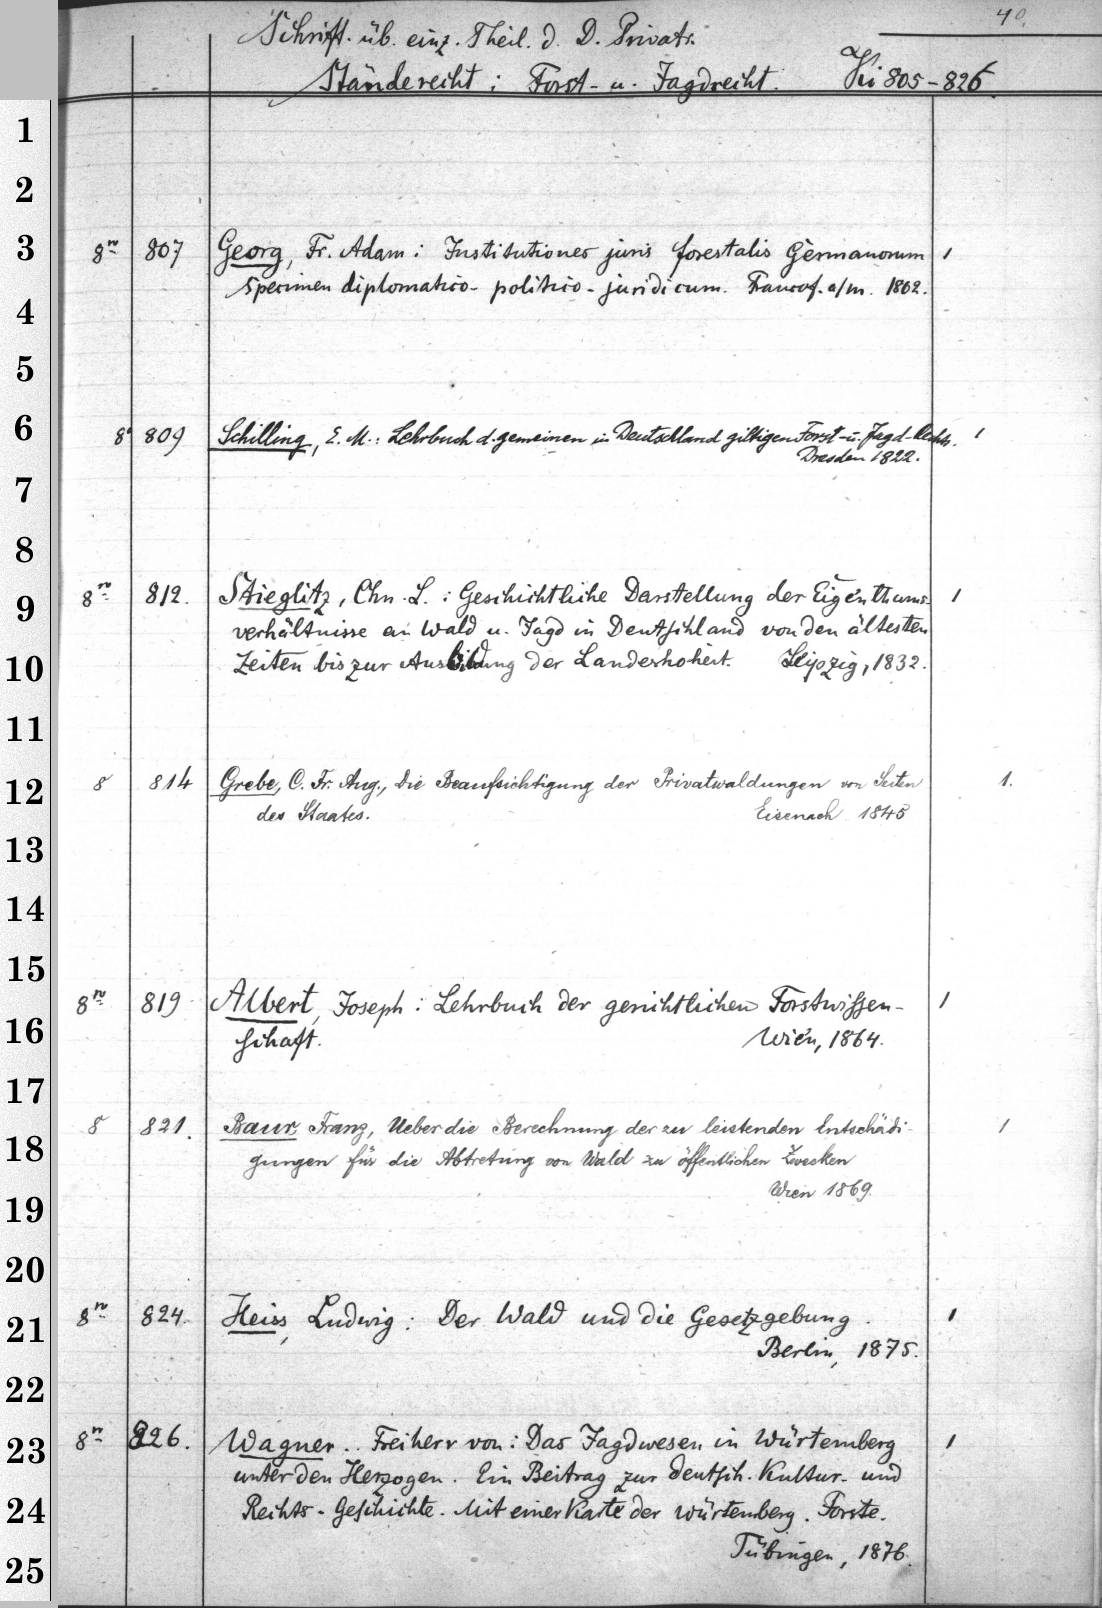 40.
Schrift. üb. einz. Theil. d. D. Privatr.
Ständerecht; Forst- u. Jagdrecht. Ki 805-826
1
2
3 8vo 807 Georg, Fr. Adam: Institutiones juris forestalis Germanorum 1
specimen diplomatico-politico-juridicum. Francof. a/m. 1802.
4
5
6 8° 809 Schilling, E. M.: Lehrbuch d. gemeinen in Deutschland giltigen Forst- u. Jagd-Rechts. 1
Dresden 1822.
7
8
9 8vo 812. Stieglitz, Chn. L.: Geschichtliche Darstellung der Eigenthums- 1
verhältnisse an Wald u. Jagd in Deutschland von den ältesten
10 Zeiten bis zur Ausbildung der Landeshoheit. Leipzig, 1832.
11
12 8 814 Grebe, C. Fr. Aug., Die Beaufsichtigung der Privatwaldungen von Seiten 1.
des Staates. Eisenach 1845
13
14
15
8vo 819 Albert, Joseph: Lehrbuch der gerichtlichen Forstwissen- 1
16 schaft. Wien, 1864.
17
18 8 821. Baur Franz, Ueber die Berechnung der zu leistenden Entschädi- 1
gungen für die Abtretung von Wald zu öffentlichen Zwecken
19 Wien 1869.
20
21 8vo 824. Heiss, Ludwig: Der Wald und die Gesetzgebung. 1
Berlin, 1875.
22
23 8vo 826. Wagner.. Freiherr von: Das Jagdwesen in Würtemberg 1
unter den Herzogen. Ein Beitrag zur deutsch. Kultur- und
24 Rechts-Geschichte. Mit einer Karte der würtemberg. Forste.
Tübingen, 1876.
25